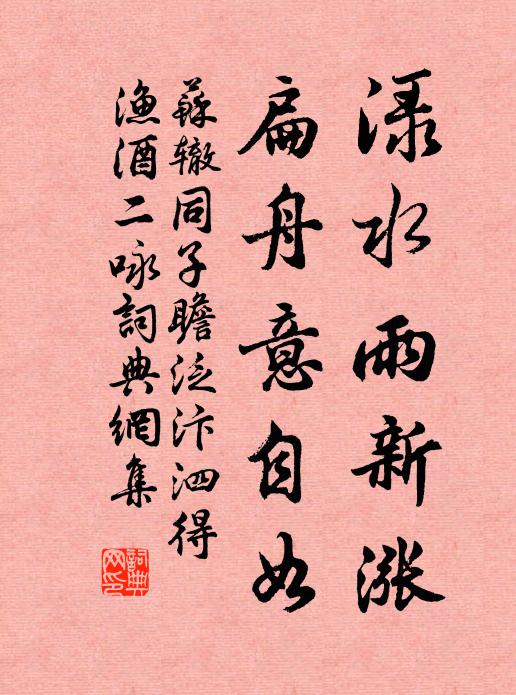 渌水雨新涨
扁舟意自如
蘇辙同子瞻泛汴泗得
漁酒二咏詞典網集
詞典
网印